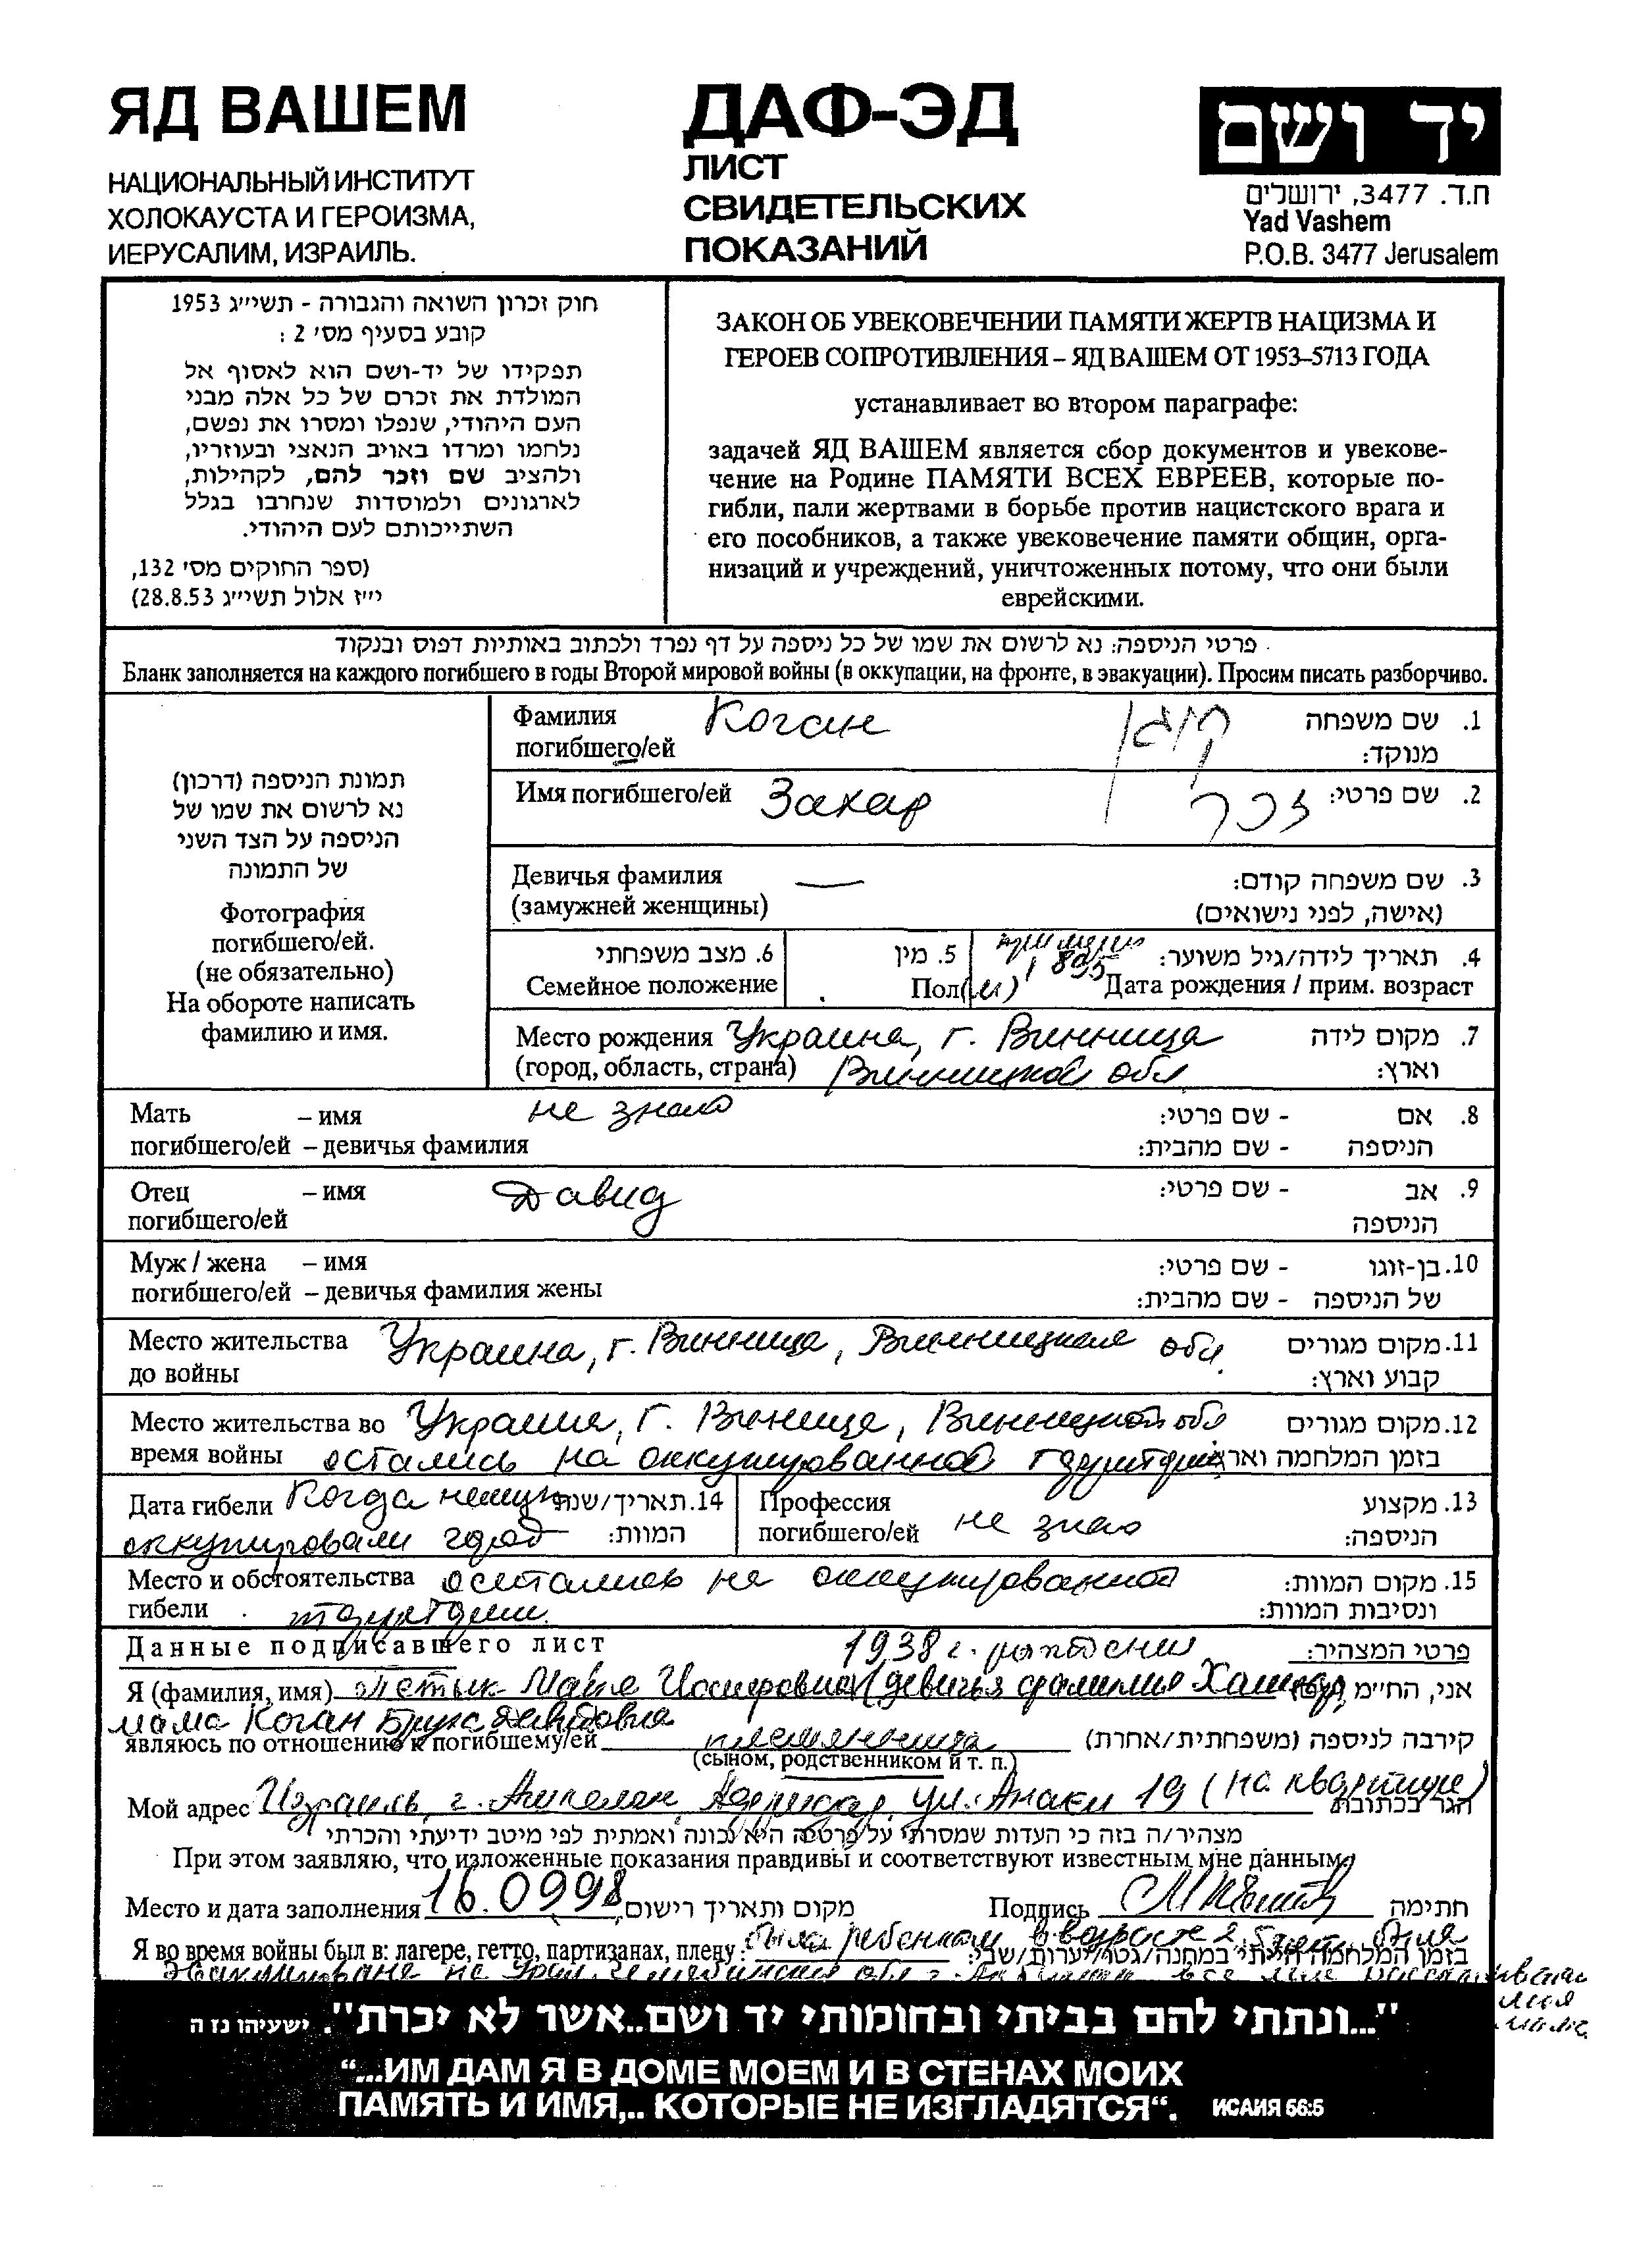 ЯД ВАШЕМ
НАЦИОНАЛЬНЫЙ ИНСТИТУТ
ХОЛОКАУСТА И ГЕРОИЗМА,
ИЕРУСАЛИМ, ИЗРАИЛЬ.
ДАФ-ЭД
ЛИСТ
СВИДЕТЕЛЬСКИХ
ПОКАЗАНИЙ
יד ושם
ת.ד. 3477, ירושלים
Yad Vashem
P.O.B. 3477 Jerusalem
חוק זכרון השואה והגבורה - תשי״ג 1953
קובע בסעיף מס׳ 2 :
תפקידו של יד-ושם הוא לאסוף אל
המולדת את זכרם של כל אלה מבני
העם היהודי, שנפלו ומסרו את נפשם,
נלחמו ומרדו באויב הנאצי ובעוזריו,
ולהציב שם וזכר להם, לקהילות,
לארגונים ולמוסדות שנחרבו בגלל
השתייכותם לעם היהודי.
(ספר החוקים מס׳ 132,
י״ז אלול תשי״ג 28.8.53)
ЗАКОН ОБ УВЕКОВЕЧЕНИИ ПАМЯТИ ЖЕРТВ НАЦИЗМА И
ГЕРОЕВ СОПРОТИВЛЕНИЯ – ЯД ВАШЕМ ОТ 1953–5713 ГОДА
устанавливает во втором параграфе:
задачей ЯД ВАШЕМ является сбор документов и увекове-
чение на Родине ПАМЯТИ ВСЕХ ЕВРЕЕВ, которые по-
гибли, пали жертвами в борьбе против нацистского врага и
его пособников, а также увековечение памяти общин, орга-
низаций и учреждений, уничтоженных потому, что они были
еврейскими.
פרטי הניספה: נא לרשום את שמו של כל ניספה על דף נפרד ולכתוב באותיות דפוס ובנקוד
Бланк заполняется на каждого погибшего в годы Второй мировой войны (в оккупации, на фронте, в эвакуации). Просим писать разборчиво.
תמונת הניספה (דרכון)
נא לרשום את שמו של
הניספה על הצד השני
של התמונה
Фотография
погибшего/ей.
(не обязательно)
На обороте написать
фамилию и имя.
Фамилия Коган קוגן 1. שם משפחה
погибшего/ей מנוקד:
Имя погибшего/ей Захар זכר 2. שם פרטי:
Девичья фамилия — 3. שם משפחה קודם:
(замужней женщины) (אישה, לפני נישואים)
6. מצב משפחתי 5. מין 4. תאריך לידה/גיל משוער:
Семейное положение Пол (м) 1895 Дата рождения / прим. возраст
Место рождения Украина, г. Винница 7. מקום לידה
(город, область, страна) Винницкой обл וארץ:
Мать – имя не знаю 8. אם - שם פרטי:
погибшего/ей – девичья фамилия הניספה - שם מהבית:
Отец – имя Давид 9. אב - שם פרטי:
погибшего/ей הניספה
Муж / жена – имя 10. בן-זוגו - שם פרטי:
погибшего/ей – девичья фамилия жены של הניספה - שם מהבית:
Место жительства Украина, г. Винница, Винницкая обл. 11. מקום מגורים
до войны קבוע וארץ:
Место жительства во Украина, г. Винница, Винницкой обл 12. מקום מגורים
время войны остались на оккупированной территории בזמן המלחמה וארץ
Дата гибели Когда немцы 14. תאריך/שנת Профессия 13. מקצוע
оккупировали город המוות: погибшего/ей не знаю הניספה:
Место и обстоятельства остались на оккупированной 15. מקום המוות:
гибели территории. ונסיבות המוות:
Данные подписавшего лист 1938 г. рождения פרטי המצהיר:
Я (фамилия, имя) Майя Иосифовна (девичья фамилия אני, הח״מ
мама Коган Давидовна
являюсь по отношению к погибшему/ей племянница קירבה לניספה (משפחתית/אחרת)
(сыном, родственником и т. п.)
Мой адрес Израиль, г. Ашкелон, ул. Анаки 19 (на квартире) הגר בכתובת
מצהיר/ה בזה כי העדות שמסרתי על פרטיה היא נכונה ואמתית לפי מיטב ידיעתי והכרתי
При этом заявляю, что изложенные показания правдивы и соответствуют известным мне данным
Место и дата заполнения 16.0998 מקום ותאריך רישום Подпись חתימה
Я во время войны был в: лагере, гетто, партизанах, плену: была ребенком в возрасте 2,5 лет. Была
בזמן המלחמה הייתי במחנה/גטו/יערות/שבי:
эвакуирована на Урал, Челябинская обл
моя
мама
"...ונתתי להם בביתי ובחומותי יד ושם..אשר לא יכרת". ישעיהו נז ה
“...ИМ ДАМ Я В ДОМЕ МОЕМ И В СТЕНАХ МОИХ
ПАМЯТЬ И ИМЯ,.. КОТОРЫЕ НЕ ИЗГЛАДЯТСЯ“. ИСАИЯ 56:5